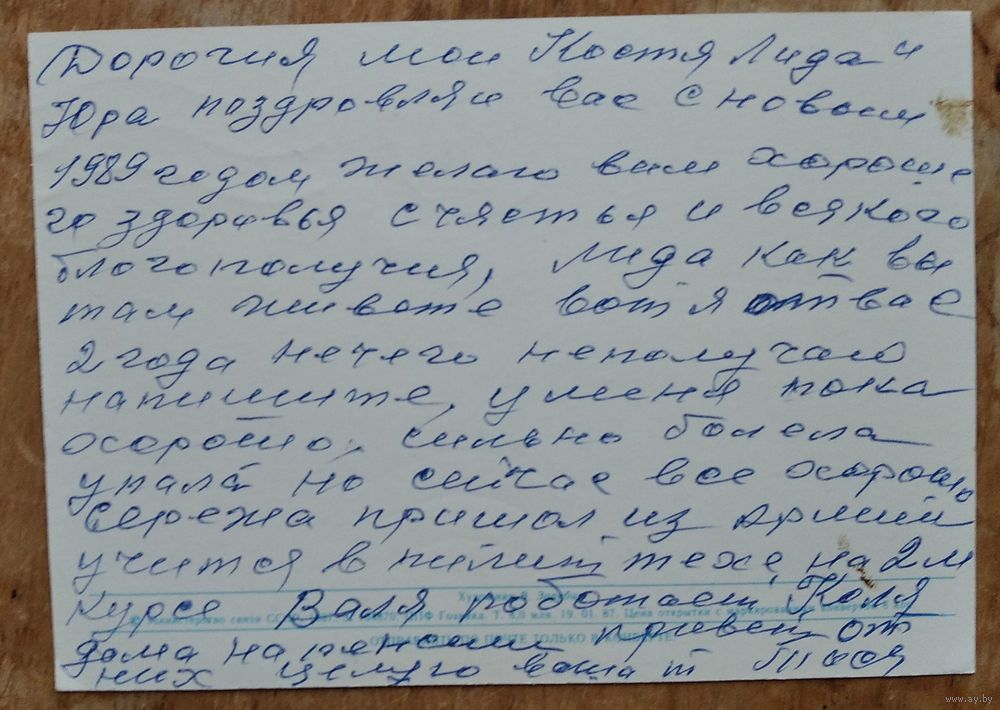 Дорогия мои Костя Лида и
Юра поздровляю вас с новым
1989 годом желаю вам хороше
го здоровья счястья и всякого
блогополучия, Лида как вы
там живете вот я от вас
2 года нечего неполучаю
напишите, у меня пока
хорошо, сильно болела
упала но сейчас все хорошо
Сережа пришол из армии
учится в политехе, на 2м
курсе Валя роботает, Коля
дома на пенсии привет от
них целую ваша т Тася
Министерство связи СССР
Гознака. 19. 01. 87. Цена открытки с маркированным конвертом
ОТПРАВЛЯТЬ ПО ПОЧТЕ ТОЛЬКО В КОНВЕРТЕ
www.ay.by